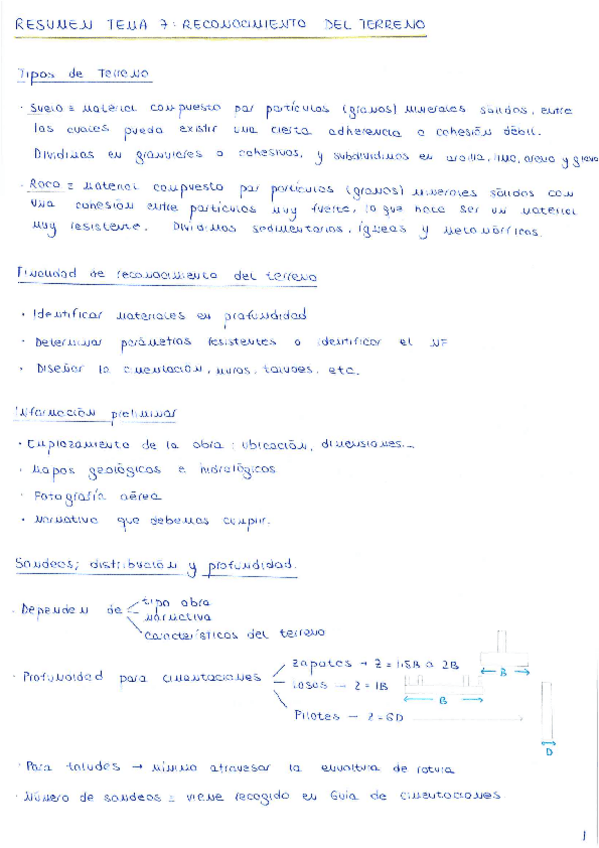 RESUMEN TEMA 7: RECONOCIMIENTO DEL TERRENO
Tipos de Terreno
· Suelo = Material compuesto por partículas (granos) minerales sólidas, entre
las cuales pueda existir una cierta adherencia o cohesión débil.
Dividimos en granulares o cohesivos, y subdividimos en arcilla, limo, arena y grava
· Roca = Material compuesto por partículas (granos) minerales sólidas con
una cohesión entre partículas muy fuerte, lo que hace ser un material
muy resistente. Dividimos sedimentarias, ígneas y metamórficas.
Finalidad de reconocimiento del terreno
· Identificar materiales en profundidad
· Determinar parámetros resistentes o identificar el NF
· Diseñar la cimentación, muros, taludes, etc.
Información preliminar
· Emplazamiento de la obra: ubicación, dimensiones...
· Mapas geológicos e hidrológicos
· Fotografía aérea
· Normativa que debemos cumplir.
Sondeos; distribución y profundidad.
· Dependen de
tipo obra
normativa
características del terreno
· Profundidad para cimentaciones
Zapatas → Z = 1,5B a 2B
Losas — Z = 1B
Pilotes — Z = 6D
B
B
D
· Para taludes → mínimo atravesar la envoltura de rotura
· Número de sondeos = viene recogido en Guía de cimentaciones
1